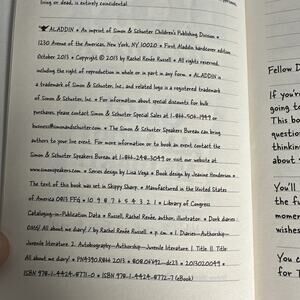 living or dead, is entirely coincidental.
ALADDIN • An imprint of Simon & Schuster Children's Publishing Division •
1230 Avenue of the Americas, New York, NY 10020 • First Aladdin hardcover edition
October 2013 • Copyright © 2013 by Rachel Renée Russell • All rights reserved,
including the right of reproduction in whole or in part in any form. • ALADDIN is
a trademark of Simon & Schuster, Inc., and related logo is a registered trademark
of Simon & Schuster, Inc. • For information about special discounts for bulk
purchases, please contact Simon & Schuster Special Sales at 1-866-506-1949 or
business@simonandschuster.com. • The Simon & Schuster Speakers Bureau can bring
authors to your live event. For more information or to book an event contact the
Simon & Schuster Speakers Bureau at 1-866-248-3049 or visit our website at
www.simonspeakers.com. • Series design by Lisa Vega • Book design by Jeanine Henderson •
The text of this book was set in Skippy Sharp. • Manufactured in the United States
of America 0813 FFG • 10 9 8 7 6 5 4 3 2 1 • Library of Congress
Cataloging-in-Publication Data • Russell, Rachel Renée, author, illustrator. • Dork diaries :
OMG! All about me diary! / by Rachel Renée Russell. • p. cm. • 1. Diaries—Authorship—
Juvenile literature. 2. Autobiography—Authorship—Juvenile literature. I. Title. II. Title:
All about me diary! • PN4390.R864 2013 • 808.06'692—dc23 • 2013020049 •
ISBN 978-1-4424-8771-0 • ISBN 978-1-4424-8772-7 (eBook)
Fellow D
If you're
going to
This bo
question
thinking
about
You'll
the fu
momen
wishes
You c
for T